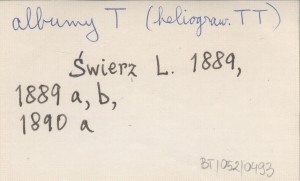 albumy T (heliograw. TT)
Świerz L. 1889,
1889 a, b,
1890 a
BT/052/0493